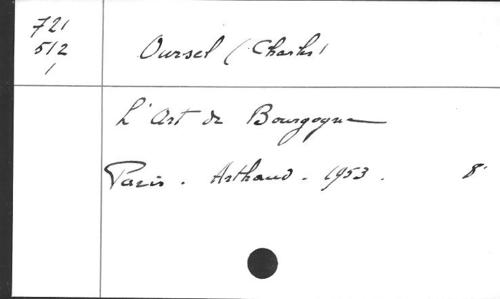 721
512
1
Oursel (Charles)
L'Art de Bourgogne
Paris. Arthaud. 1953. 8°